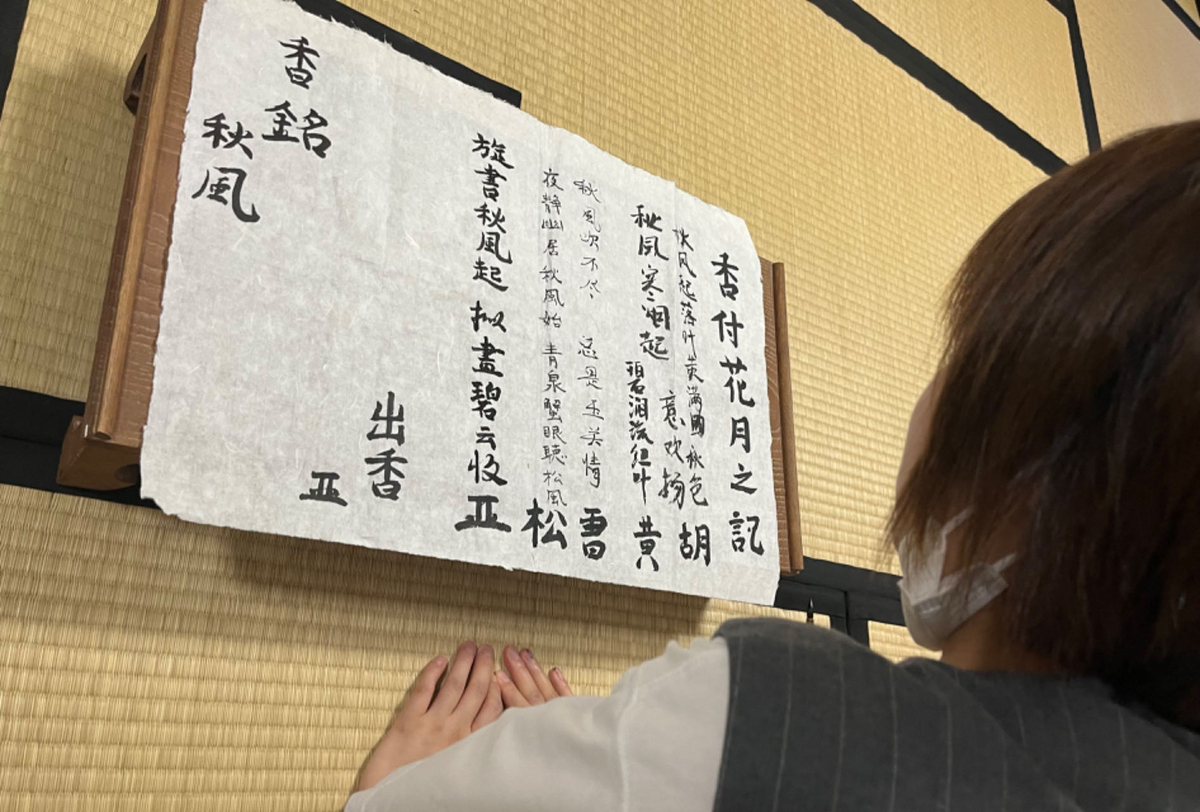 香付花月之記
秋风起落叶黄满園秋色
意欢扬 胡
秋風寒涧起 碧泪流红叶 黄
秋風吹不尽 总是玉关情 雪
夜静幽居秋風始 青泉蟹眼聴松風 松
旋書秋風起 拟畫碧云收 亚
出香
亚
香銘
秋風